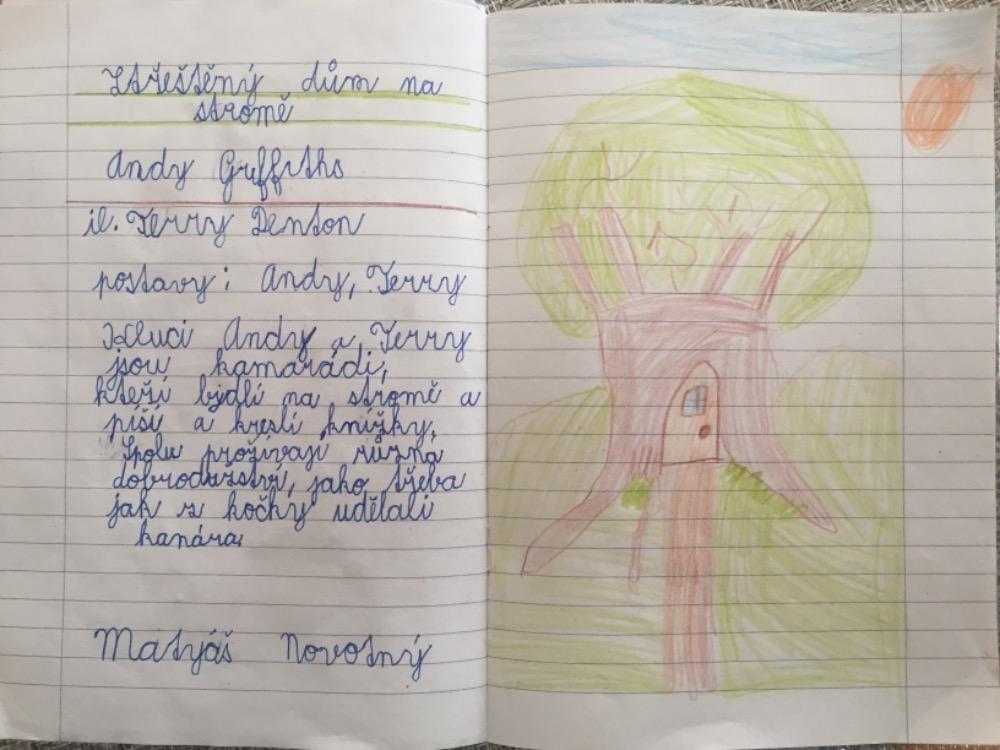 Ztřeštěný dům na
stromě
Andy Griffiths
il. Terry Denton
postavy: Andy, Terry
Kluci Andy a Terry
jsou kamarádi,
kteří bydlí na stromě a
píší a kreslí knížky.
Spolu prožívají různá
dobrodružství, jako třeba
jak z kočky udělali
kanára.
Matyáš Novotný